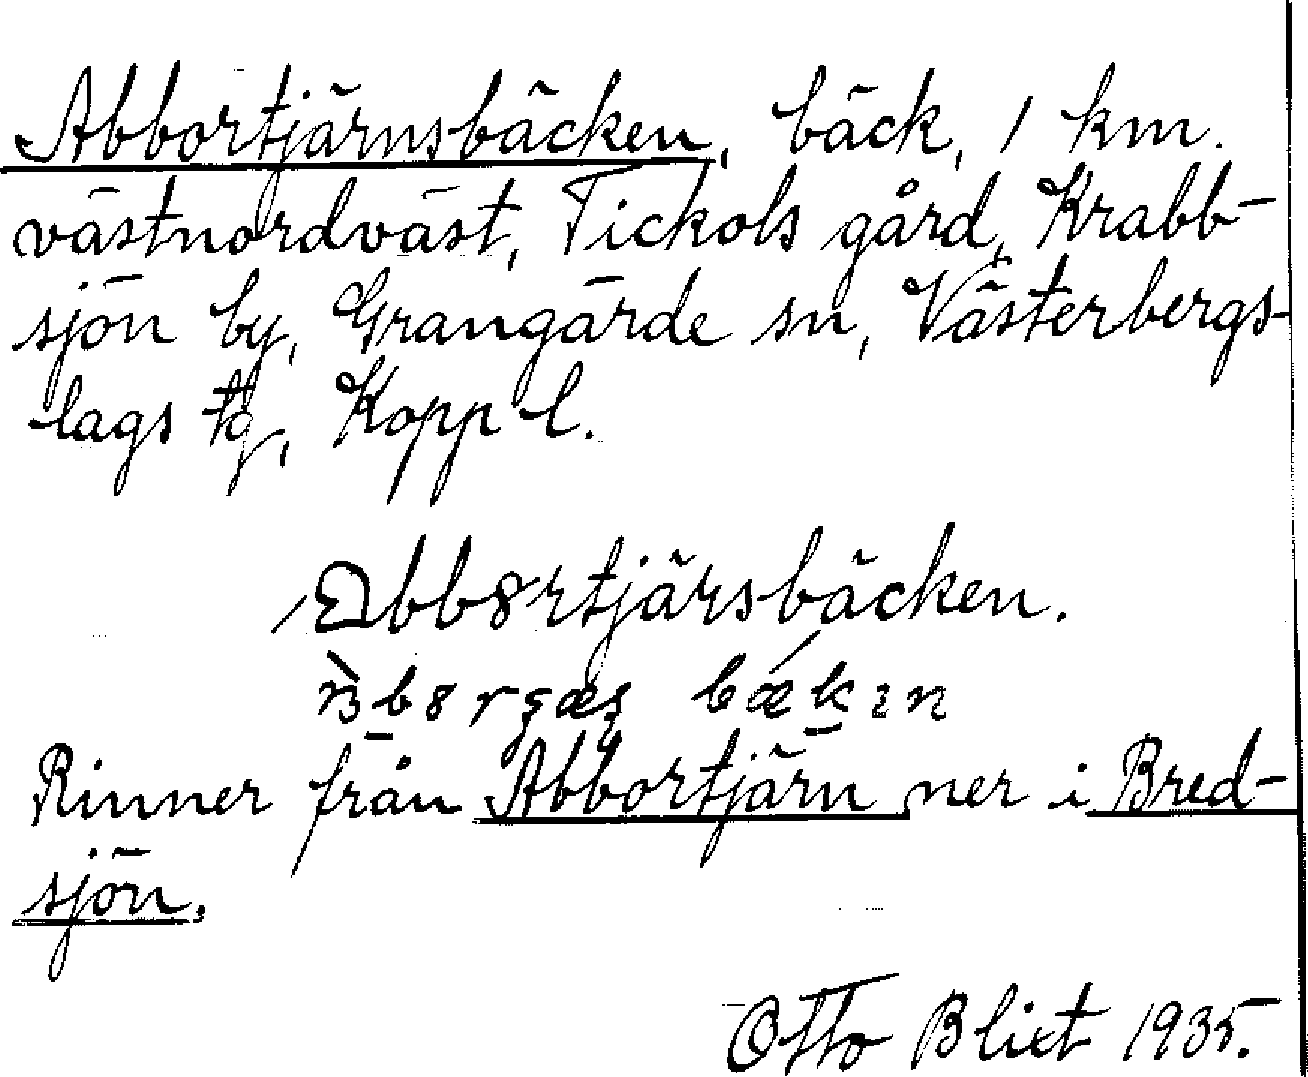 Abbortjärnsbäcken, bäck, 1 km.
västnordväst, Tickols gård, Krabb-
sjön by, Grangärde sn, Västerbergs-
lags tg, Kopp l.
bbortjärsbäcken.
Rinner från Abbortjärn ner i Bred-
sjön.
Otto Blixt 1935.